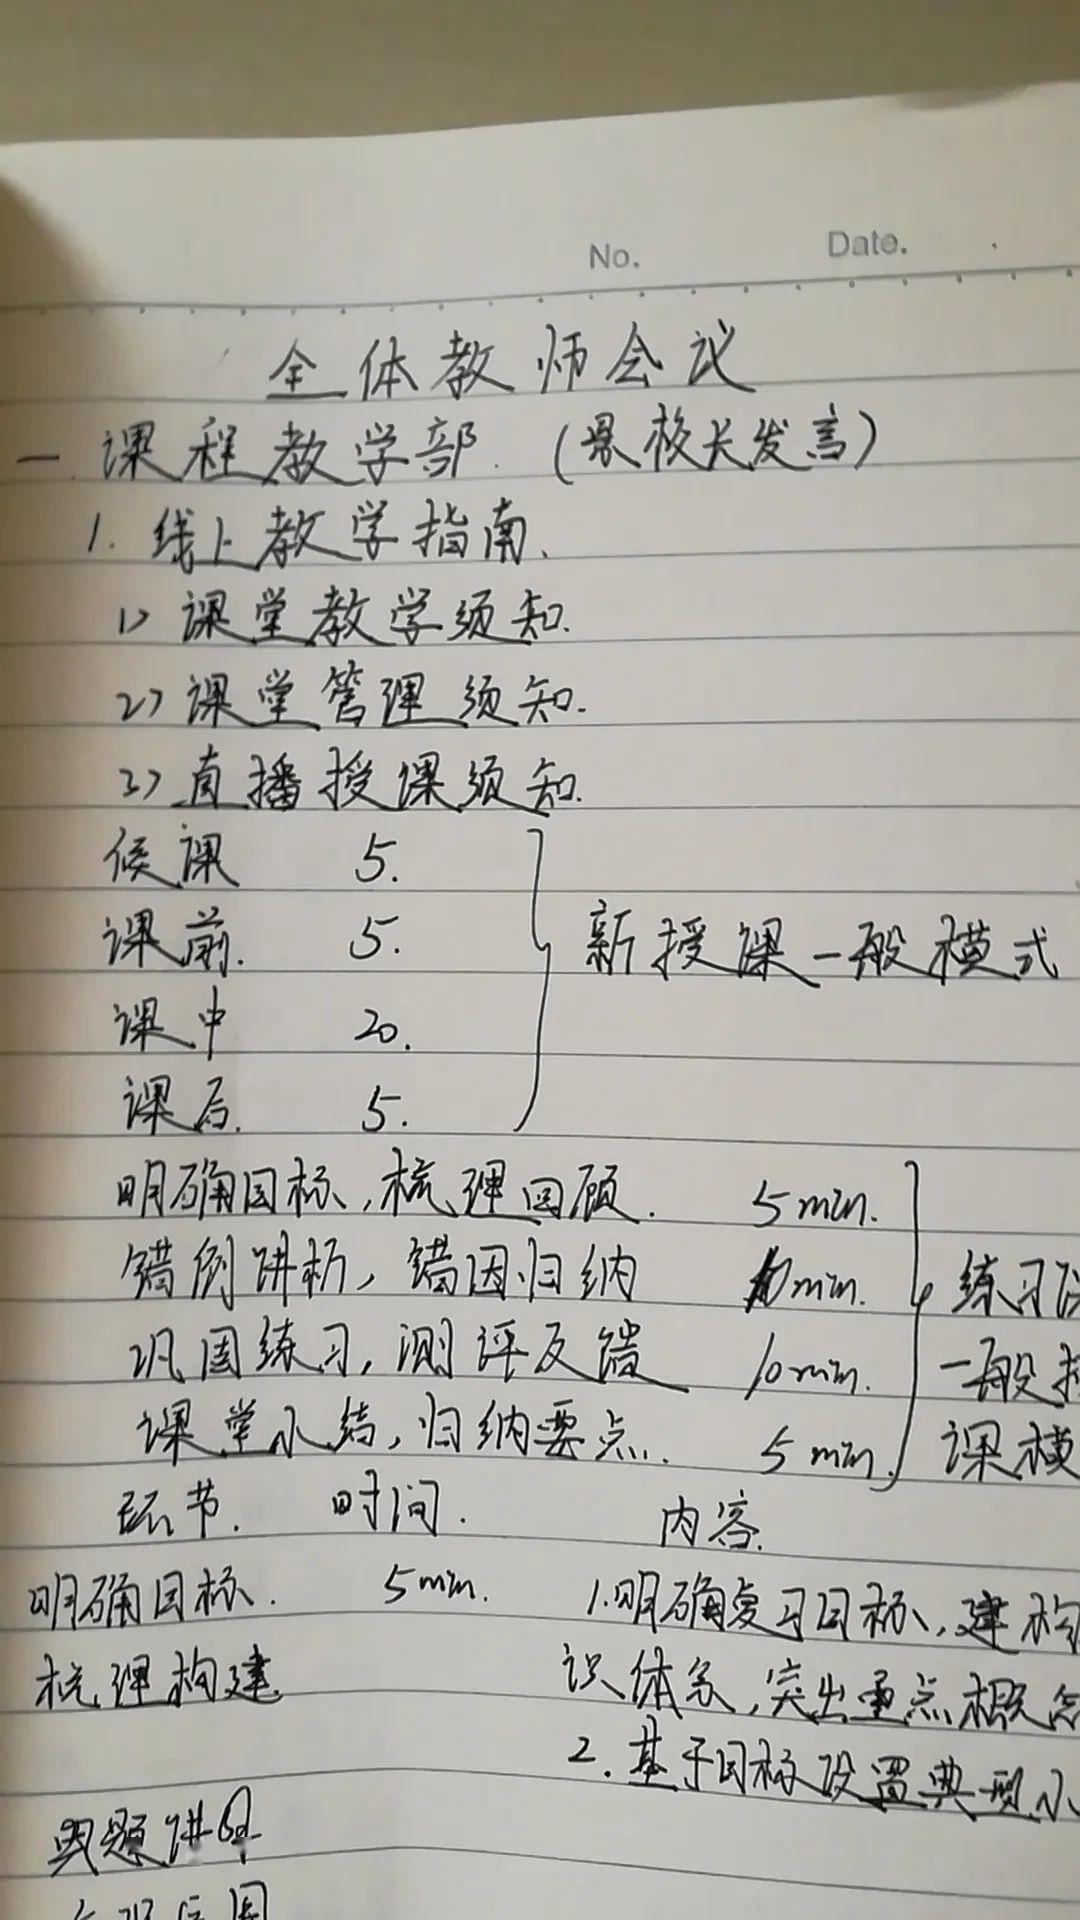 No. Date.
全体教师会议
一. 课程教学部. (校长发言)
1. 线上教学指南.
1) 课堂教学须知.
2) 课堂管理须知.
3) 直播授课须知.
候课 5.
课前. 5.
新授课一般模式
课中 20.
课后. 5.
明确目标, 梳理回顾. 5min.
错例讲析, 错因归纳 10min. 练习
巩固练习, 测评反馈 10min. 一般
课堂小结, 归纳要点. 5min. 课模
环节. 时间. 内容.
明确目标. 5min. 1.明确复习目标, 建构
梳理构建 识体系, 突出重点概念
2. 基于目标设置典型小
题讲